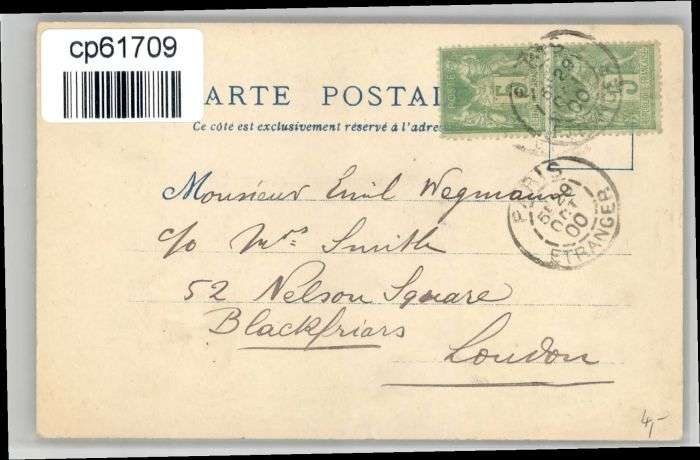 cp61709
ARTE POSTAL
Ce côté est exclusivement réservé à l'adre
Monsieur Emil Wegmann
c/o Mrs. Smith
52 Nelson Square
Blackfriars
London
PARIS
5E 29
OCT
00
ETRANGER
PARIS
29
00
POSTES
5
5
4,-